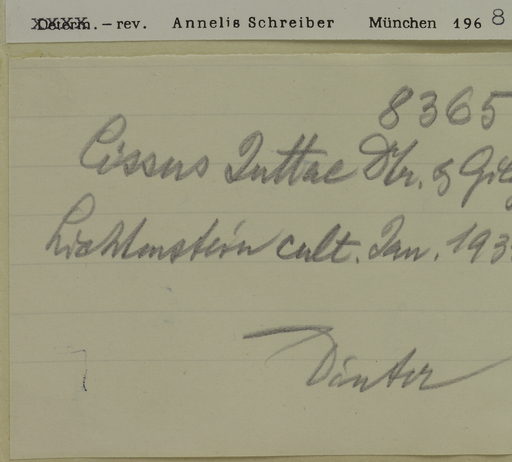 Determ. – rev. Annelis Schreiber München 1968
8365
Cissus Juttae Dtr. & Gilg
Lichtenstein cult. Jan. 193
Dinter